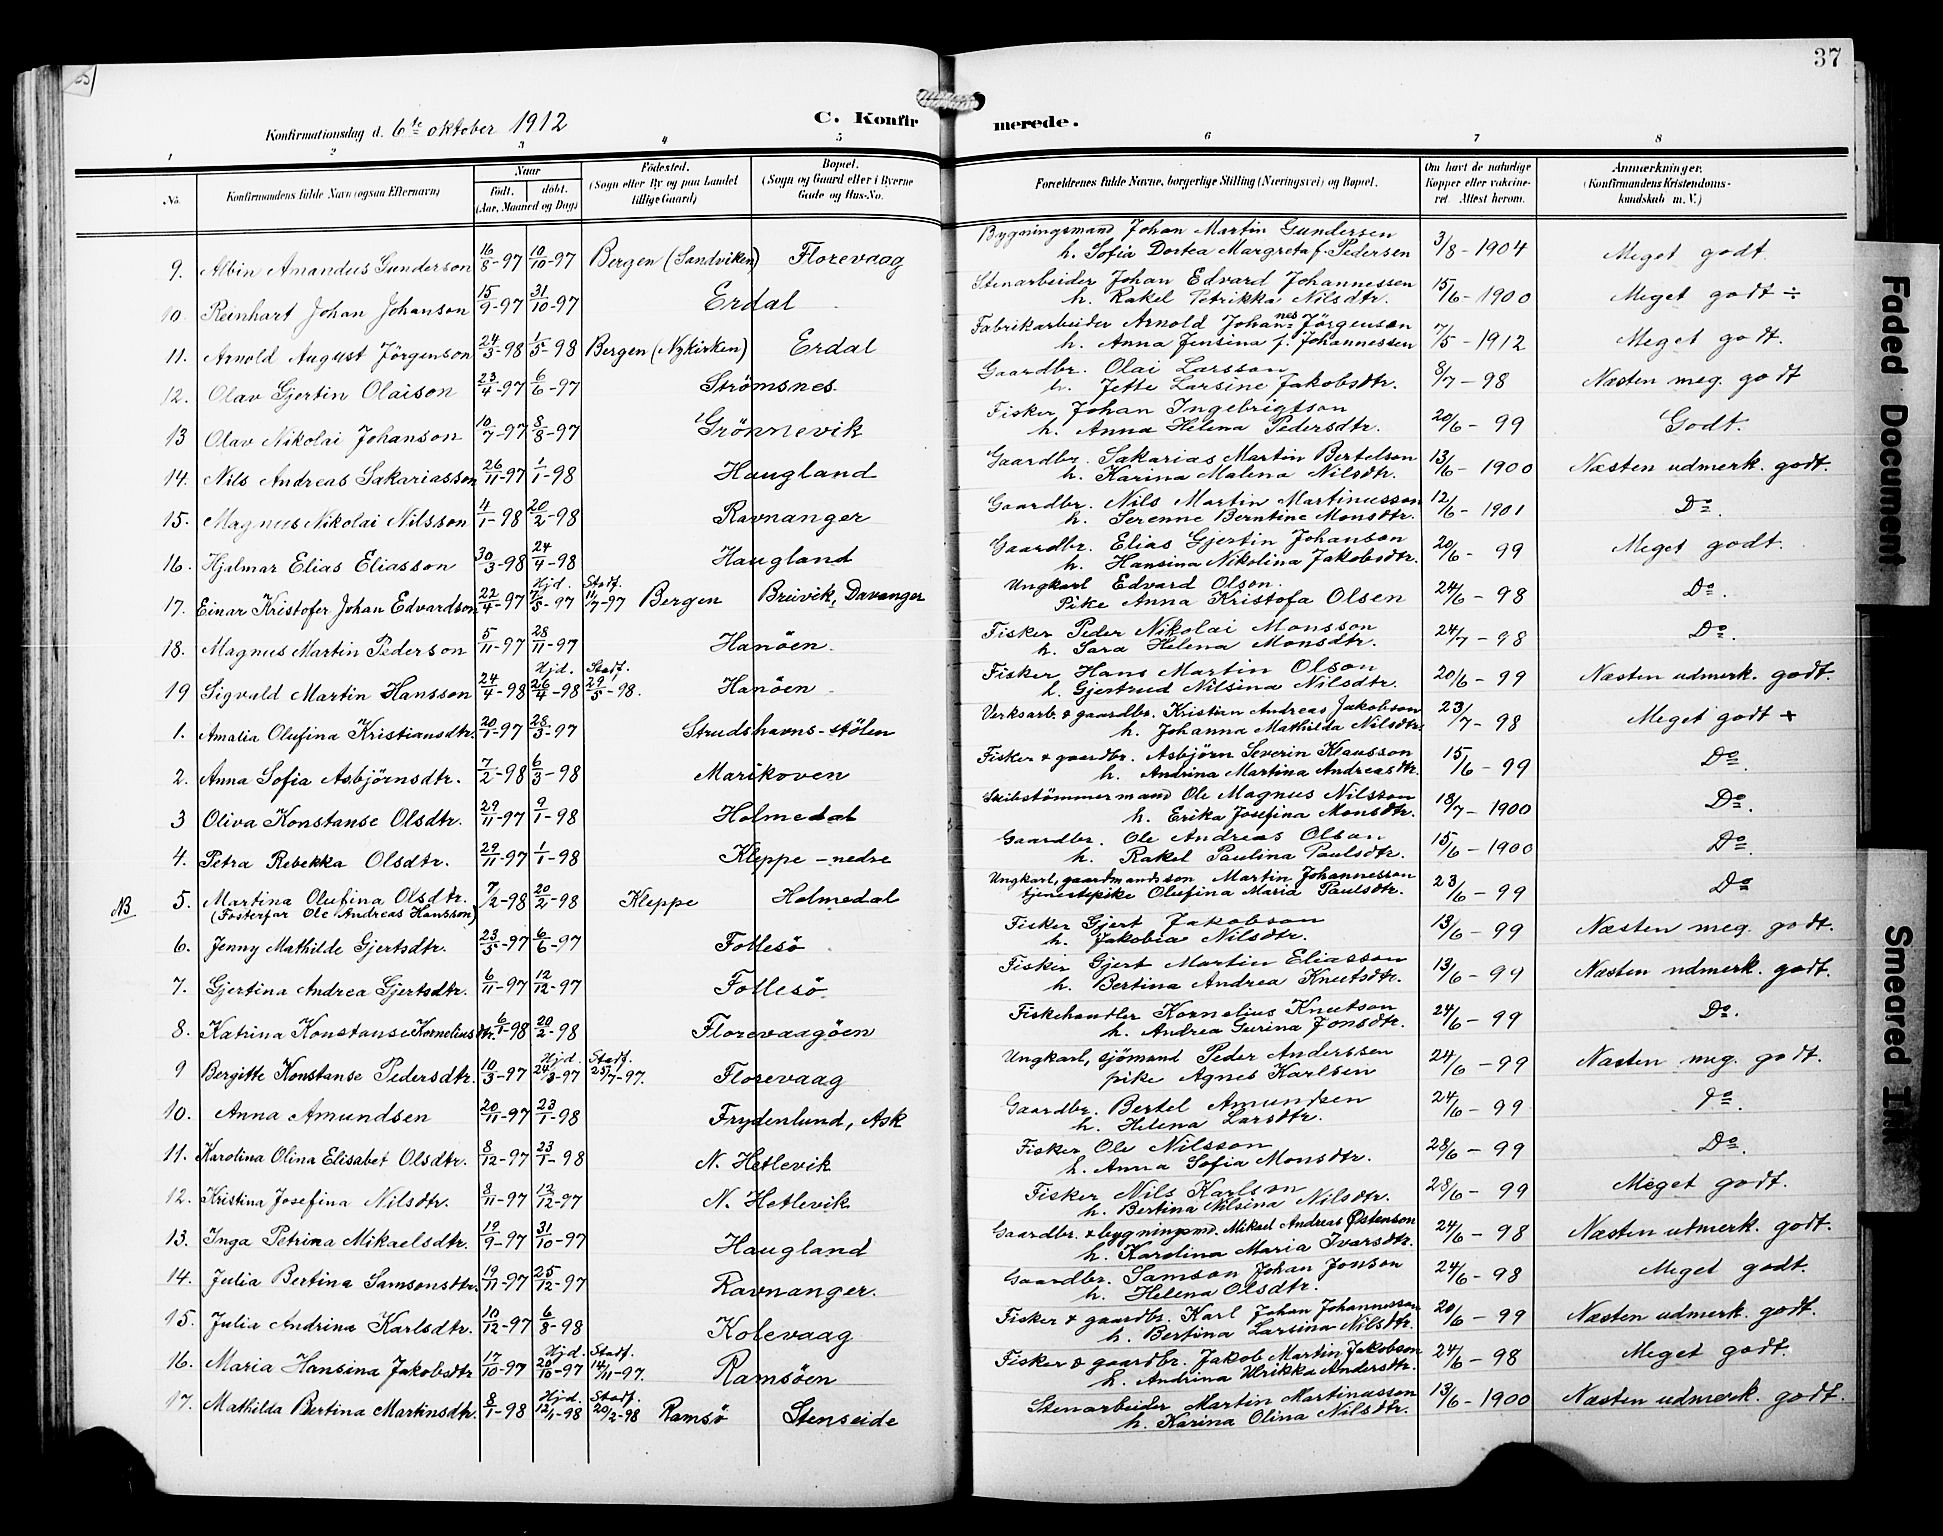 37
Konfirmationsdag d. 6te oktober 1912
C. Konfir merede.
1 2 3 4 5 6 7 8
No. Konfirmandens fulde Navn (ogsaa Efternavn) Naar født. døbt. (Aar, Maaned og Dag) Fødested. (Sogn eller By og paa Landet tillige Gaard) Bopæl. (Sogn og Gaard eller i Byerne Gade og Hus-No. Forældrenes fulde Navne, borgerlige Stilling (Næringsvei) og Bopæl. Om havt de naturlige Kopper eller vakcineret. Attest herom. Anmærkninger. (Konfirmandens Kristendomskundskab m. V.)
9. Albin Amandus Gunderson 16/8-97 10/10-97 Bergen (Sandviken) Florevaag Bygningsmand Johan Martin Gundersen h. Sofia Dortea Margreta f. Pedersen 3/8-1904 Meget godt.
10. Reinhart Johan Johanson 15/9-97 31/10-97 Erdal Stenarbeider Johan Edvard Johannessen h. Rakel Petrikka Nilsdtr. 15/6-1900 Meget godt ÷
11. Arnold August Jörgenson 24/3-98 1/5-98 Bergen (Nykirken) Erdal Fabrikarbeider Arnold Johannes Jörgenson h. Anna Jensina f. Johannessen 7/5-1912 Meget godt.
12. Olav Gjertin Olaison 23/4-97 6/6-97 Strömsnes Gaardbr. Olai Larsson h. Jette Larsine Jakobsdtr. 8/7-98 Næsten meg. godt
13 Olav Nikolai Johanson 10/7-97 8/8-97 Grönnevik Fisker Johan Ingebrigtson h. Anna Helena Pedersdtr. 20/6-99 Godt.
14. Nils Andreas Sakariasson 26/11-97 1/1-98 Haugland Gaardbr. Sakarias Martin Bertelson h. Karina Malena Nilsdtr. 13/6-1900 Næsten udmerk. godt.
15. Magnus Nikolai Nilsson 4/1-98 20/2-98 Ravnanger Gaardbr. Nils Martin Martinusson h. Serenne Berntine Monsdtr. 12/6-1901 Do.
16. Hjalmar Elias Eliasson 30/3-98 24/4-98 Haugland Gaardbr. Elias Gjertin Johanson h. Hansina Nikolina Jakobsdtr. 20/6-99 Meget godt.
17. Einar Kristofer Johan Edvardson 22/4-97 Hjd. 7/5-97 Stadf. 11/7-97 Bergen Breivik, Davanger Ungkarl Edvard Olson. Pike Anna Kristofa Olsen 24/6-98 Do.
18. Magnus Martin Pederson 5/11-97 28/11-97 Hanöen. Fisker Peder Nikolai Monsson h. Sara Helena Monsdtr. 24/7-98 Do.
19 Sigvald Martin Hansson 24/4-98 Hjd. 26/4-98 Stadf. 29/5-98. Hanöen Fisker Hans Martin Olson h. Gjertrud Nilsina Nilsdtr. 20/6-99 Næsten udmerk. godt.
1. Amalia Olufina Kristiansdtr. 20/1-97 28/3-97 Strudshavns-stölen Verksarb. & gaardbr. Kristian Andreas Jakobson h. Johanna Mathilda Nilsdtr. 23/7-98 Meget godt +
2. Anna Sofia Asbjörnsdtr. 7/2-98 6/3-98 Marikoven Fisker & gaardbr. Asbjörn Severin Klausson h. Andrina Martina Andreasdtr. 15/6-99 Do.
3 Oliva Konstanse Olsdtr. 29/11-97 9/1-98 Holmedal Skibstömmermand Ole Magnus Nilsson h. Erika Josefina Monsdtr. 18/7-1900 Do.
4. Petra Rebekka Olsdtr. 29/11-97 1/1-98 Kleppe-nedre Gaardbr. Ole Andreas Olson h. Rakel Paulina Paulsdtr. 15/6-1900 Do.
NB 5. Martina Olufina Olsdtr. (Fosterfar Ole Andreas Hansson) 7/2-98 20/2-98 Kleppe Holmedal Ungkarl, gaardmandsson Martin Johannesson tjenestpike Olufina Maria Paulsdtr. 23/6-99 Do
6. Jenny Mathilde Gjertsdtr. 23/5-97 6/6-97 Follesö Fisker Gjert Jakobson h. Jakobia Nilsdtr. 13/6-99 Næsten meg. godt.
7. Gjertina Andrea Gjertsdtr. 6/11-97 12/12-97 Follesö. Fisker Gjert Martin Eliasson h. Bertina Andrea Knutsdtr. 13/6-99 Næsten udmerk. godt.
8. Katrina Konstanse Kornelius dtr. 6/1-98 20/2-98 Florevaagöen Fiskehandler Kornelius Knutson h. Andrea Gurina Jonsdtr. 24/6-99 Do.
9 Bergitte Konstanse Pedersdtr. 10/3-97 Hjd. 24/3-97 Stadf. 25/7-97. Florevaag Ungkarl, sjömand Peder Anderssen pike Agnes Karlsen 24/6-99 Næsten meg. godt.
10. Anna Amundsen 20/11-97 23/1-98 Frydenlund, Ask Gaardbr. Bertel Amundsen h. Helena Larsdtr. 24/6-99 Do.
11. Karolina Olina Elisabet Olsdtr. 8/12-97 23/1-98 N. Hetlevik Fisker Ole Nilsson h. Anna Sofia Monsdtr. 28/6-99 Do.
12. Kristina Josefina Nilsdtr. 8/11-97 12/12-97 N. Hetlevik Fisker Nils Karlson h. Bertina Nilsina Nilsdtr. 28/6-99 Meget godt.
13. Inga Petrina Mikaelsdtr. 19/9-97 31/10-97 Haugland Gaardbr. & bygningsmd. Mikael Andreas Østenson h. Karolina Maria Ivarsdtr. 24/6-98 Næsten utmerk. godt.
14. Julia Bertina Samsonsdtr. 19/11-97 25/12-97 Ravnanger. Gaardbr. Samson Johan Jonson h. Helena Olsdtr. 24/6-98 Meget godt.
15. Julia Andrina Karlsdtr. 10/12-97 6/8-98 Kolevaag Fisker & gaardbr. Karl Johan Johannesson h. Bertina Larsina Nilsdtr. 20/6-99 Næsten udmerk. godt.
16. Maria Hansina Jakobsdtr 17/10-97 Hjd. 20/10-97 Stadf. 14/11-97. Ramsöen Fisker & gaardbr. Jakob Martin Jakobson h. Andrina Ulrikka Andersdtr. 24/6-98 Meget godt.
17. Mathilda Bertina Martinsdtr. 8/1-98 Hjd. 12/1-98 Stadf. 20/2-98 Ramsö Stenseide Stenarbeider Martin Martinusson h. Karina Olina Nilsdtr. 13/6-1900 Næsten udmerk. godt.
Faded Document
Smeared Ink